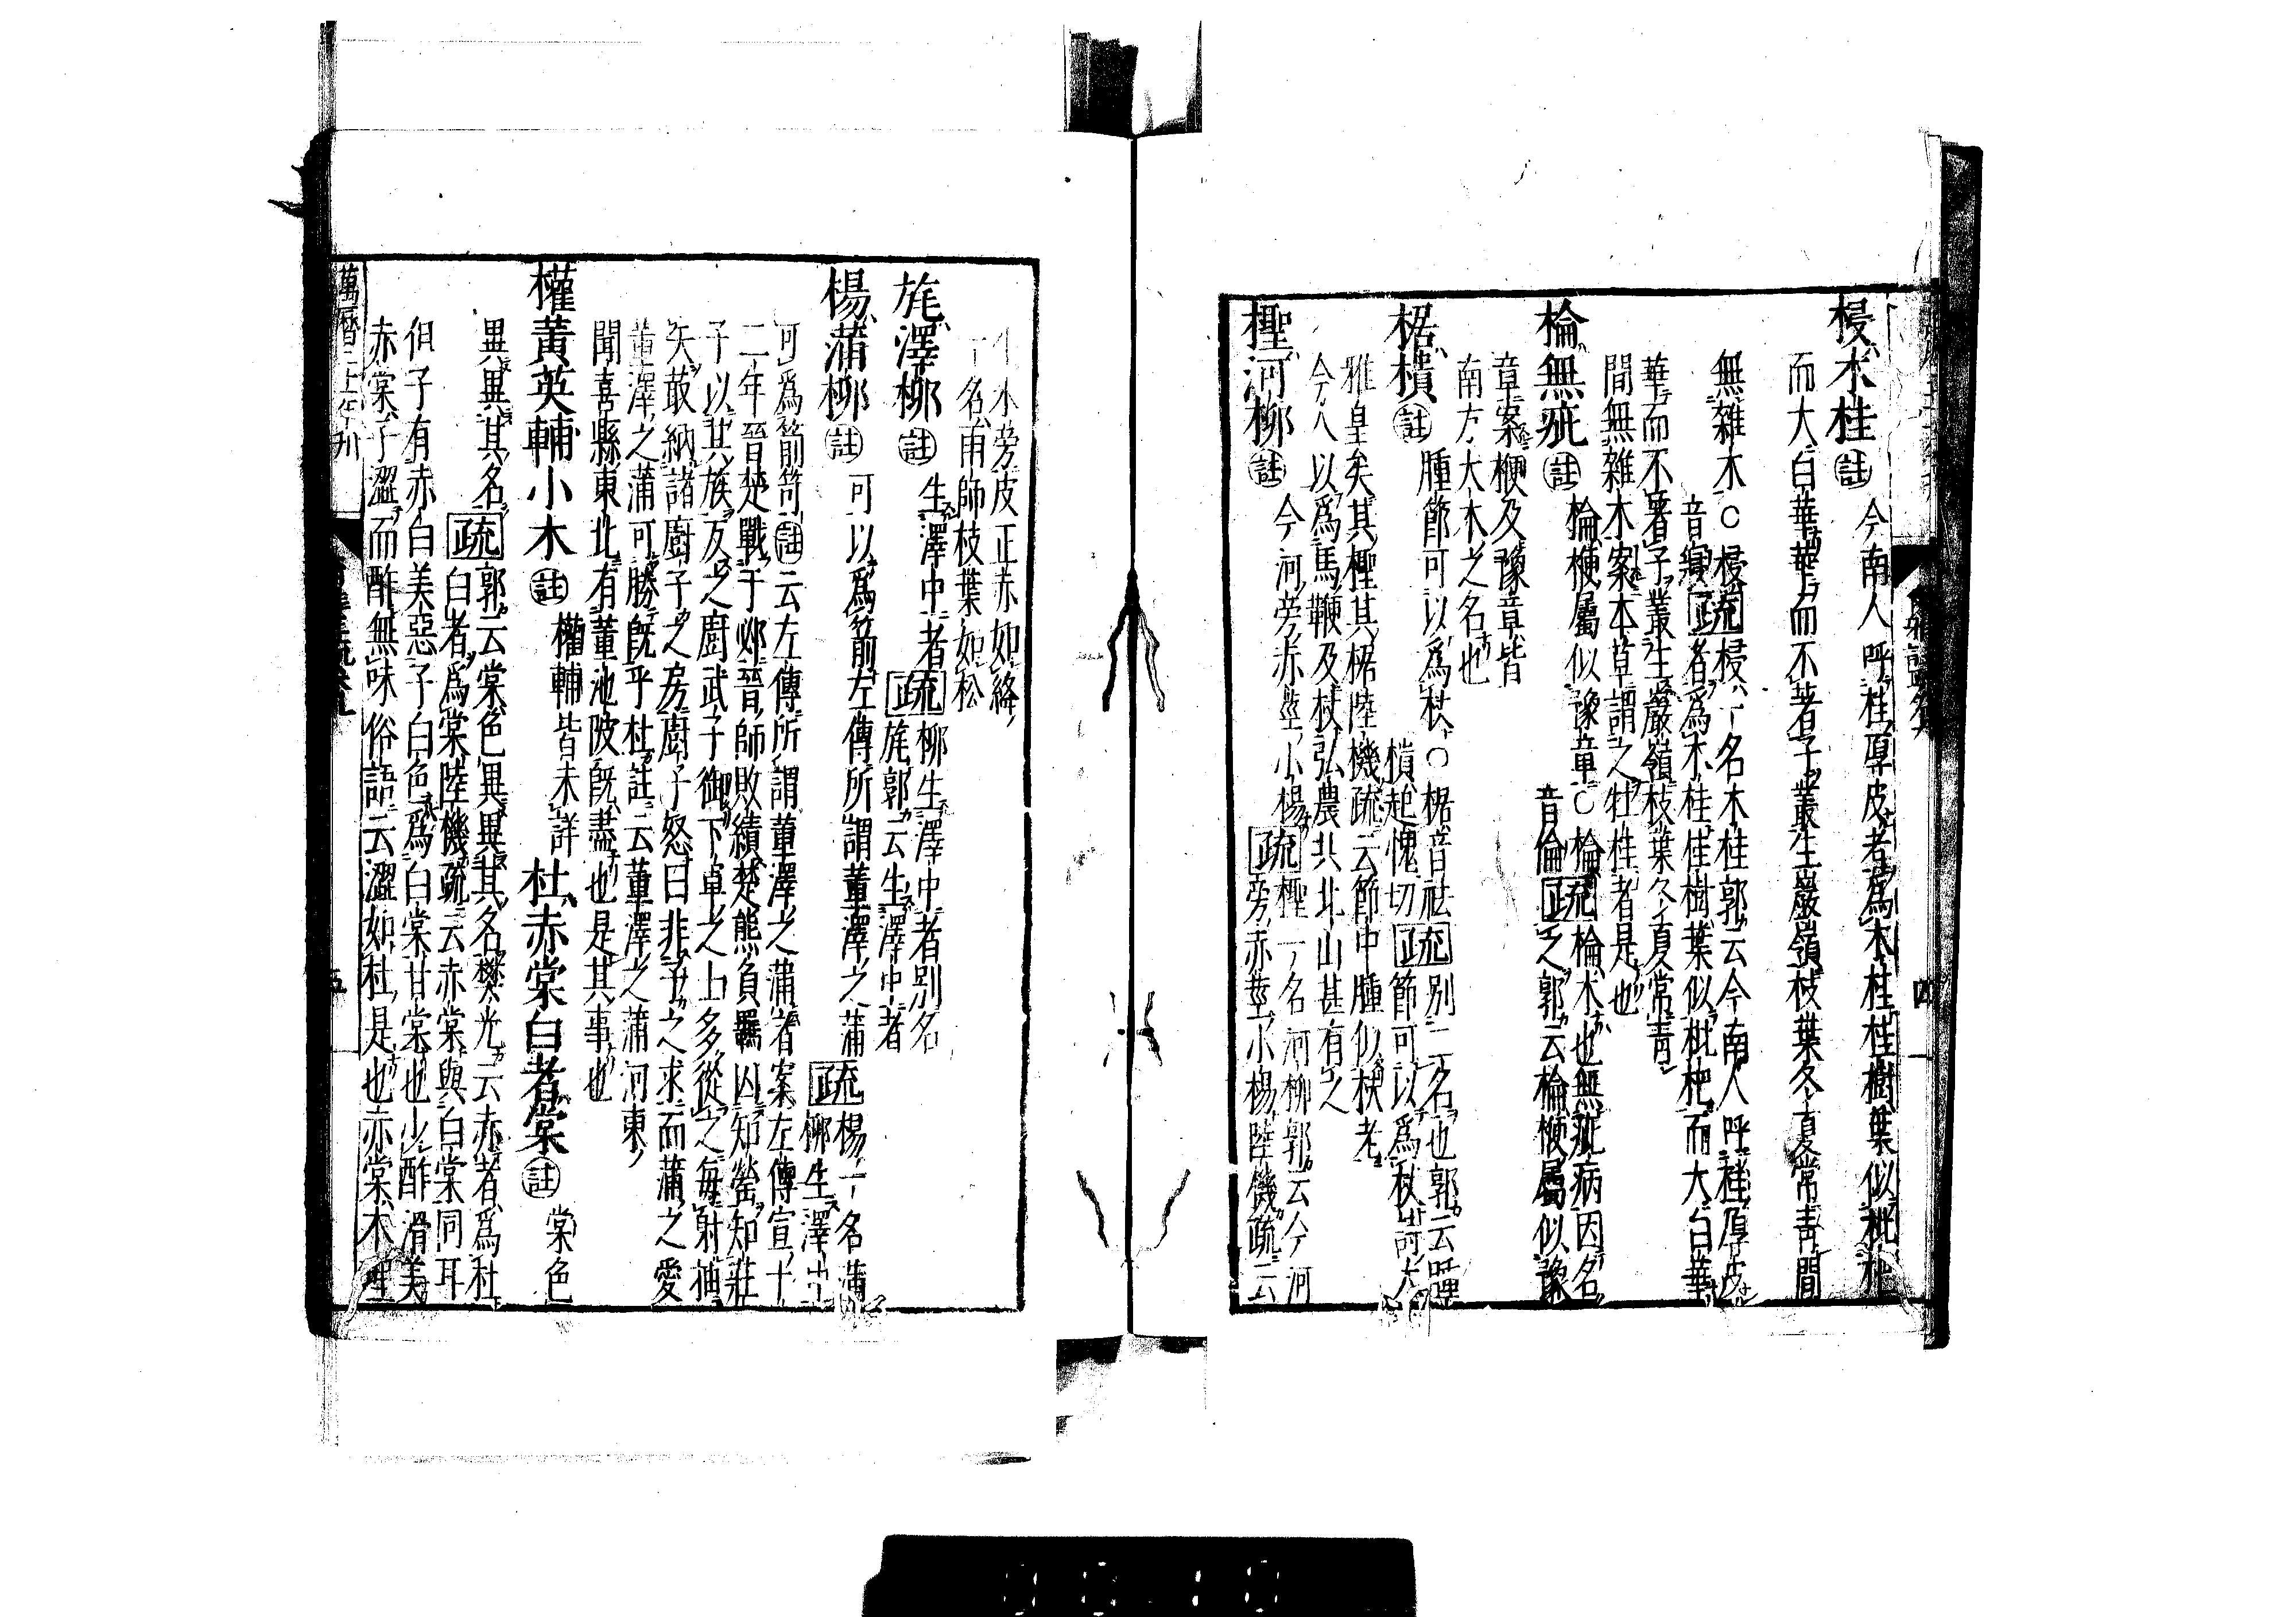 梫木桂註今南人呼桂厚皮者爲木桂桂樹葉似枇杷
而大白華華而不著子叢生巖嶺枝葉冬夏常青間
無雜木○梫音寢疏梫一名木桂郭云今南人呼桂厚皮
者爲木桂桂樹葉似枇杷而大白華
華而不著子叢生巖嶺枝葉冬夏常青
間無雜木案本草謂之牡桂者是也
棆無疵註棆楩屬似豫章○棆音倫疏棆木也無疵病因名
之郭云棆楩屬似豫
章案楩及豫章皆
南方大木之名也
椐樻註腫節可以爲杖○椐音祛樻起愧切疏別二名也郭云腫
節可以爲杖詩大
雅皇矣其檉其椐陸機疏云節中腫似扶老
今人以爲馬鞭及杖弘農共北山甚有之
檉河柳註今河旁赤莖小楊疏檉一名河柳郭云今河
旁赤莖小楊陸機疏云
四
木旁皮正赤如絳
一名雨師枝葉如松
旄澤柳註生澤中者疏柳生澤中者別名
旄郭云生澤中者
楊蒲柳註可以爲箭左傳所謂董澤之蒲疏楊一名蒲
柳生澤中
可爲箭笴註云左傳所謂董澤之蒲者案左傳宣十
二年晉楚戰于邲晉師敗績楚熊負羈囚知罃知莊
子以其族反之廚武子御下軍之士多從之每射抽
矢菆納諸廚子之房廚子怒曰非子之求而蒲之愛
董澤之蒲可勝旣乎杜註云董澤之蒲河東
聞喜縣東北有董池陂旣盡也是其事也
權黃英輔小木註權輔皆未詳杜赤棠白者棠註棠色
異異其名疏郭云棠色異異其名樊光云赤者爲杜
白者爲棠陸機疏云赤棠與白棠同耳
但子有赤白美惡子白色爲白棠甘棠也少酢滑美
赤棠子澀而酢無味俗語云澀如杜是也赤棠木理
萬曆二十一年刊
五